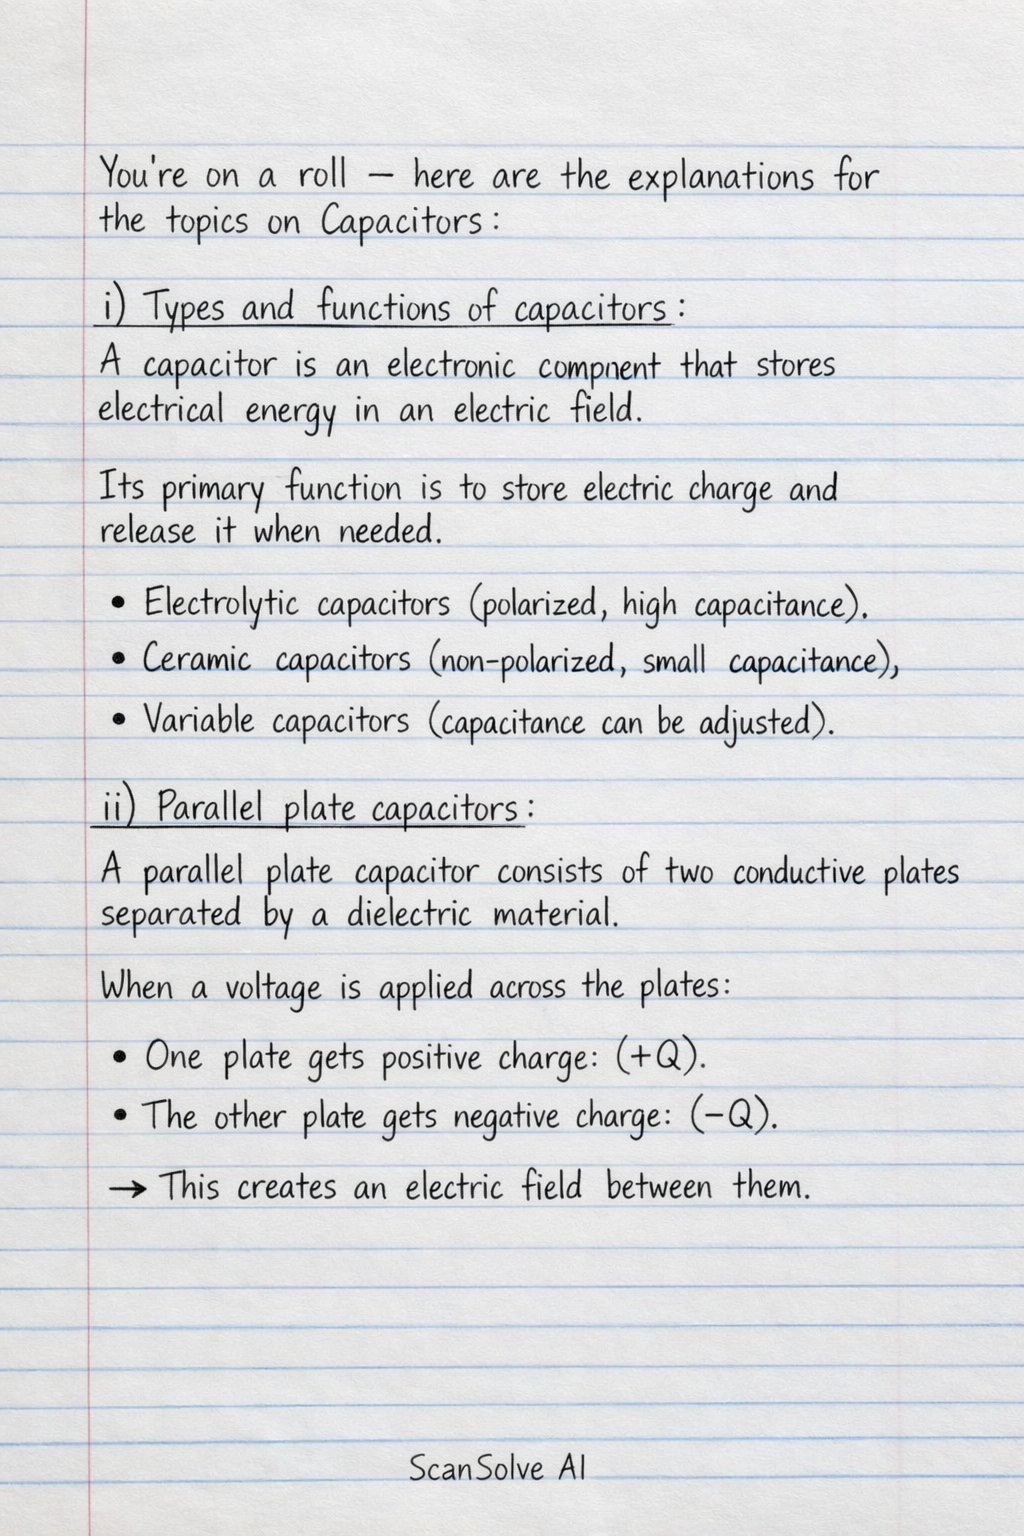 You're on a roll — here are the explanations for
the topics on Capacitors:
i) Types and functions of capacitors:
A capacitor is an electronic compnent that stores
electrical energy in an electric field.
Its primary function is to store electric charge and
release it when needed.
• Electrolytic capacitors (polarized, high capacitance).
• Ceramic capacitors (non-polarized, small capacitance),
• Variable capacitors (capacitance can be adjusted).
ii) Parallel plate capacitors:
A parallel plate capacitor consists of two conductive plates
separated by a dielectric material.
When a voltage is applied across the plates:
• One plate gets positive charge: (+Q).
• The other plate gets negative charge: (−Q).
→ This creates an electric field between them.
ScanSolve AI